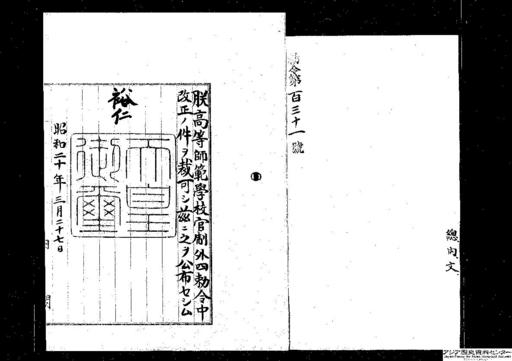 勅令第百三十一號
總內文
朕高等師範學校官制外四勅令中
改正ノ件ヲ裁可シ茲ニ之ヲ公布セシム
裕仁
天皇
御璽
昭和二十年三月二十七日
アジア歴史資料センター
Japan Center for Asian Historical Records